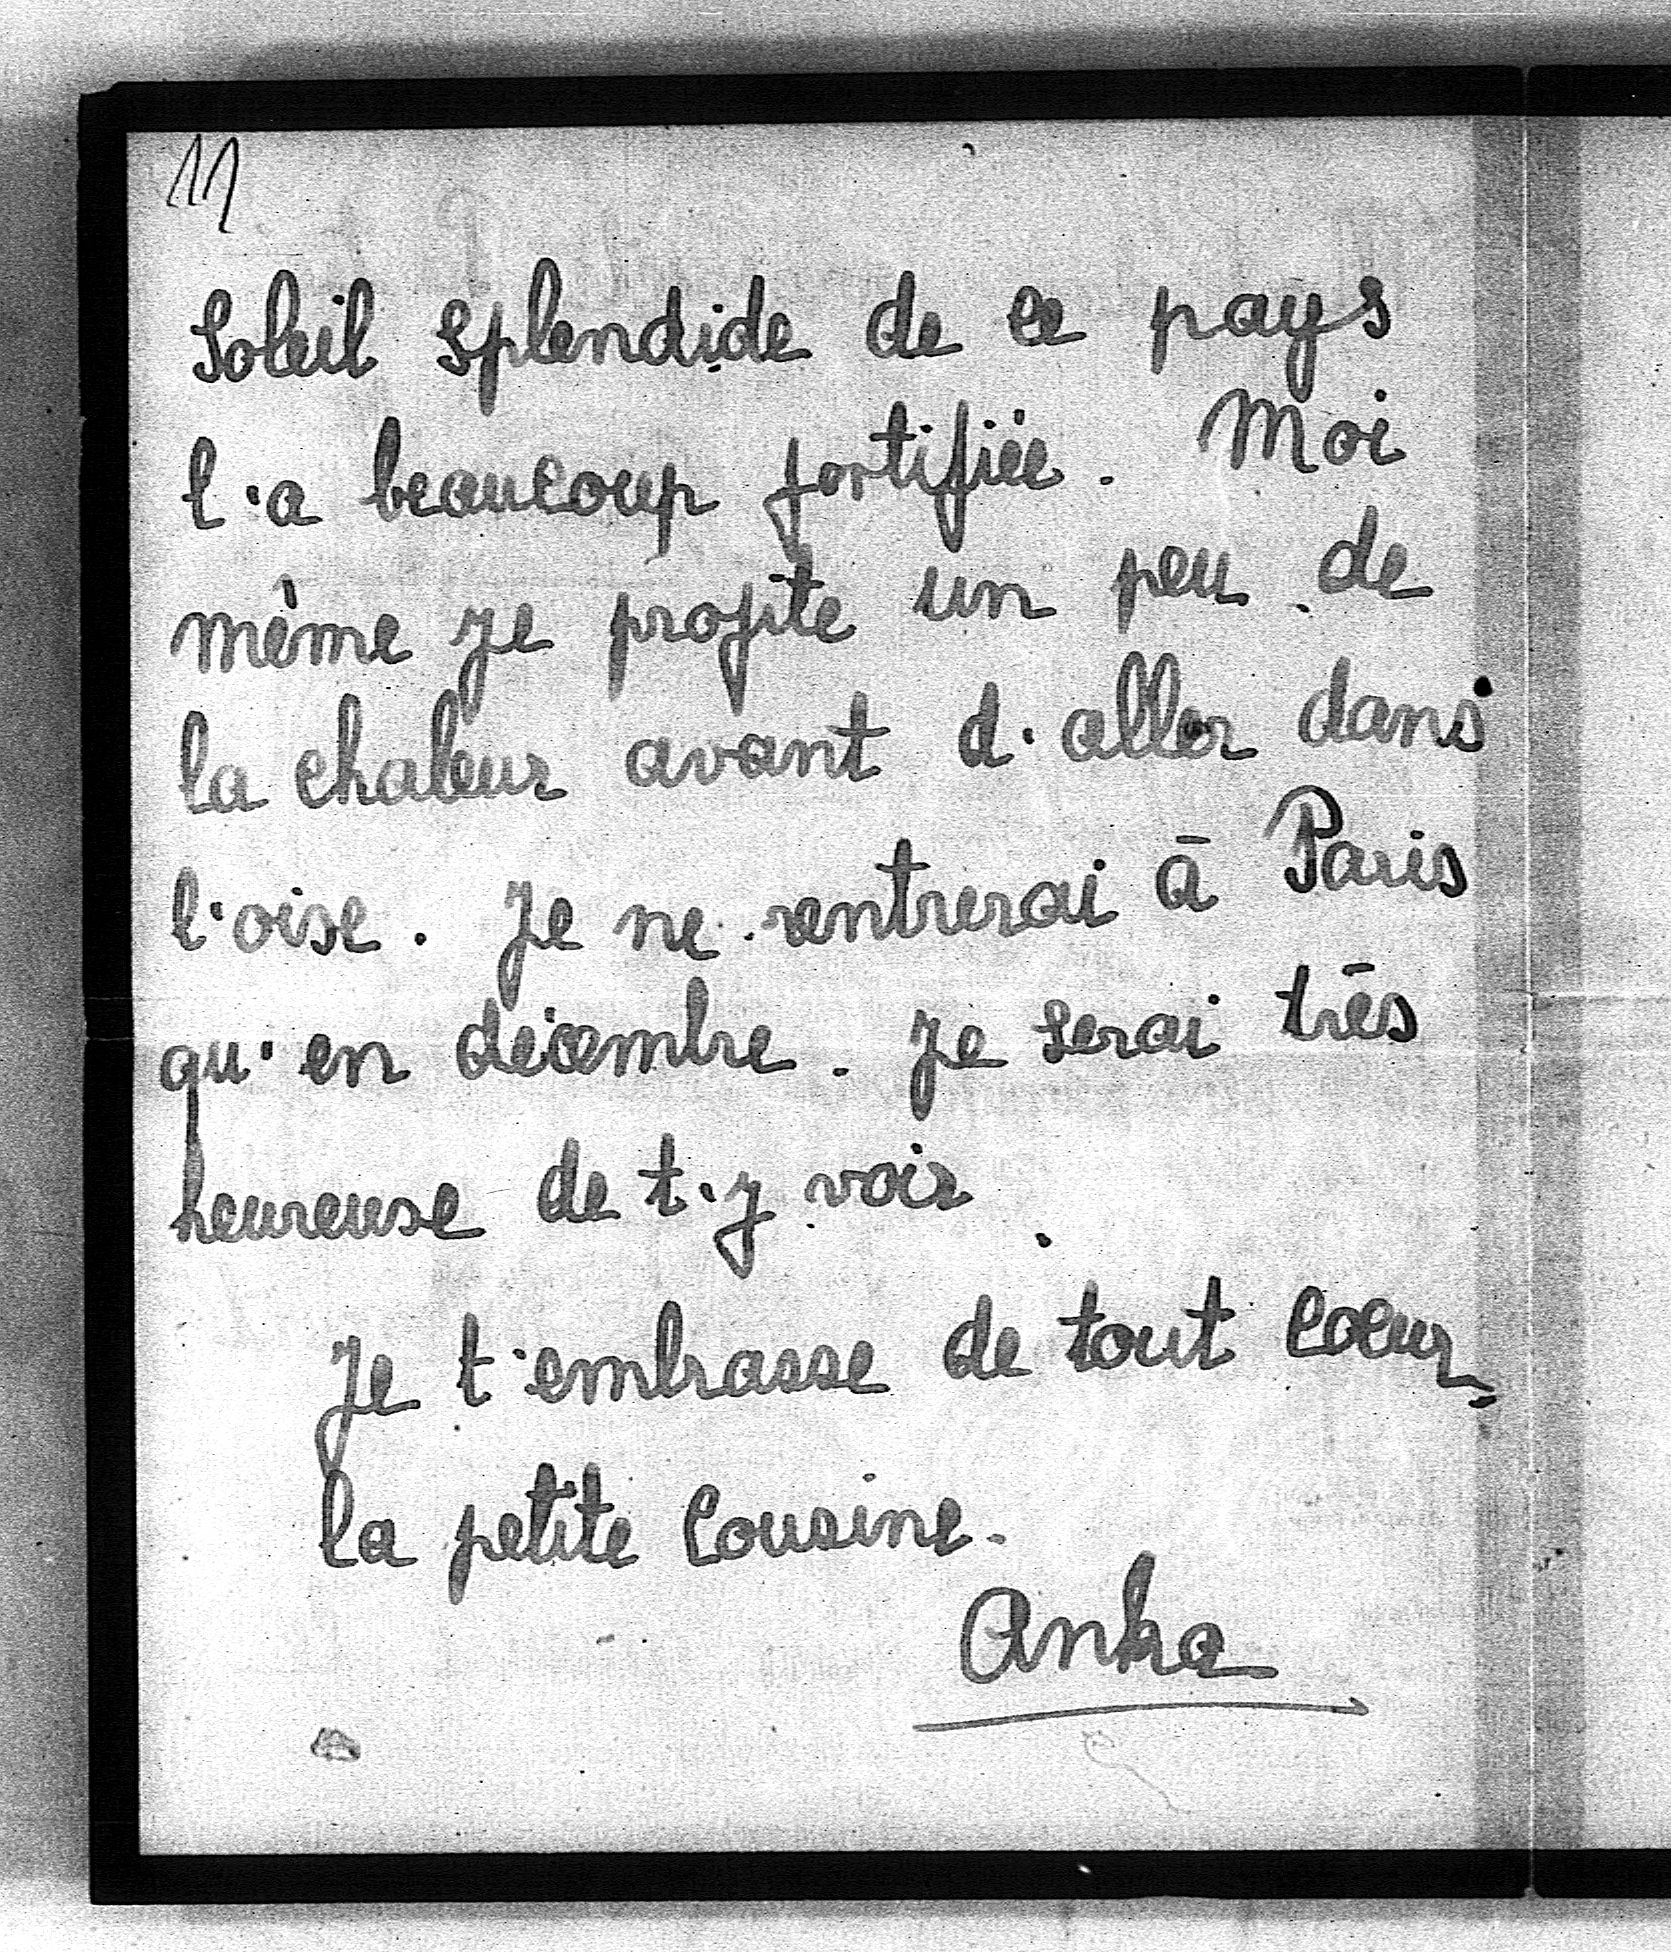 11
Soleil splendide de ce pays
l'a beaucoup fortifiée. Moi
même je profite un peu de
la chaleur avant d'aller dans
l'oise. Je ne rentrerai à Paris
qu'en décembre. Je serai très
heureuse de t'y voir.
Je t'embrasse de tout coeur,
la petite Cousine.
Anka